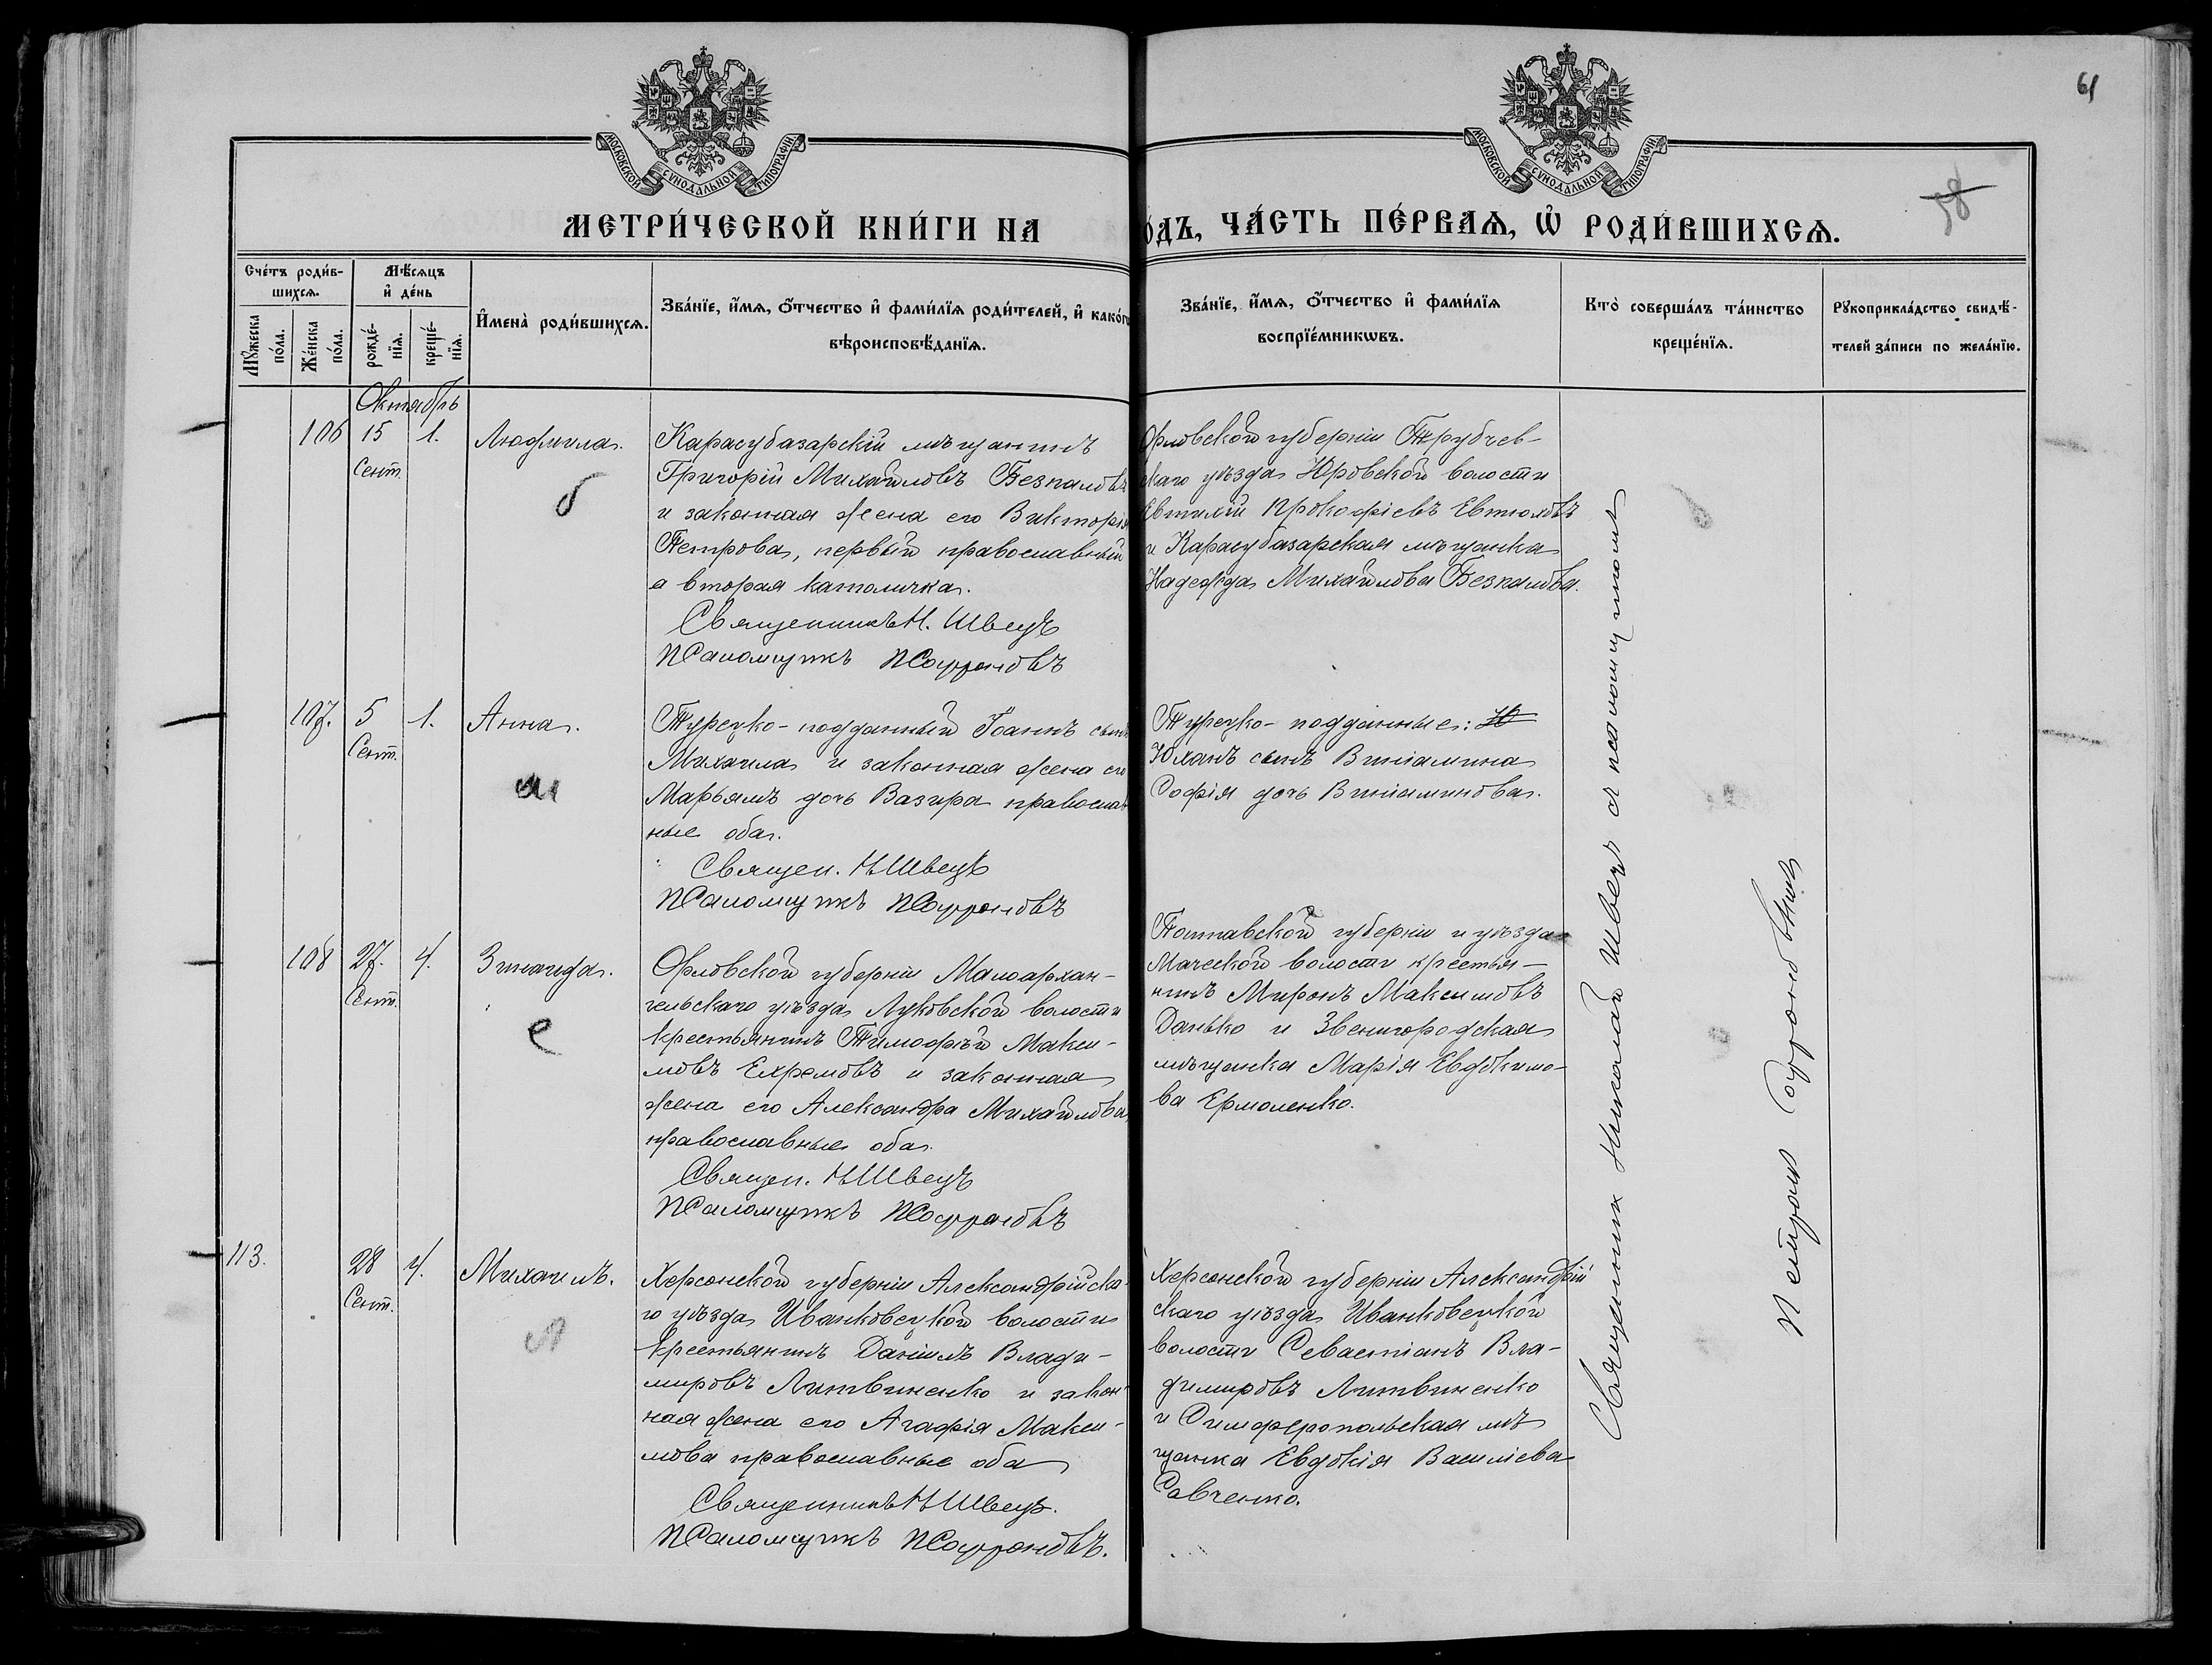 61
58
МОСКОВСКОЙ СѴНОДАЛЬНОЙ ТИПОГРАФІИ
МОСКОВСКОЙ СѴНОДАЛЬНОЙ ТИПОГРАФІИ
МЕТРИ́ЧЕСКОЙ КНИ́ГИ НА
О́ДЪ, ЧА́СТЬ ПЕ́РВАѦ, Ѡ҆ РОДИ́ВШИХСѦ.
Сче́тъ роди́в-
шихсѧ.
Мѣ́сѧцъ
и҆ де́нь
Мꙋ́жеска
по́ла.
Же́нска
по́ла.
рожде́-
нїѧ.
креще́-
нїѧ.
И҆мена̀ роди́вшихсѧ.
Зва́нїе, и҆́мѧ, ѻ҆́тчество и҆ фами́лїѧ роди́телей, и҆ како́гѡ
вѣроисповѣ́данїѧ.
Зва́нїе, и҆́мѧ, ѻ҆́тчество и҆ фами́лїѧ
воспрїе́мникѡвъ.
Кто̀ соверша́лъ та́инство
креще́нїѧ.
Рꙋкоприкла́дство свидѣ́-
телей за́писи по жела́нїю.
Октябрь
106 15 1. Людмила.
Сент.
б
Карасубазарскій мѣщанинъ
Григорій Михайловъ Безпаловъ
и законная жена его Викторія
Петрова, первый православный
а вторая католичка.
Священникъ Н. Швецъ
Псаломщикъ П Софроновъ
Орловской губерніи Трубчев-
скаго уѣзда Юровской волости
Прокофіевъ
и Карасубазарская мѣщанка
Надежда Михайлова Безпалова.
107. 5 1. Анна.
Сент.
м
Турецко-подданный Іоаннъ сынъ
Михаила и законная жена его
Марьямъ дочь Вазира православ
ные оба.
Священ. Н Швецъ
Псаломщикъ П Софроновъ
Турецко-подданные: Ю
Юханъ сынъ Виніамина
Софія дочь Виніаминова.
108 27. 4. Зинаида.
Сент.
е
Орловской губерніи Малоархан-
гельскаго уѣзда Луковской волости
крестьянинъ Тимофѣй Макси-
мовъ Ехремовъ и законная
жена его Александра Михайлова
православные оба.
Священ. Н Швецъ
Псаломщикъ П Софроновъ
Полтавской губерніи и уѣзда
Маческой волости крестья-
нинъ Миронъ Максимовъ
Данько и Звенигородская
мѣщанка Марія Евдокимо-
ва Ермоленко.
113. 28 4. Михаилъ.
Сент.
л
Херсонской губерніи Александрійска-
го уѣзда Иванковецкой волости
крестьянинъ Даніилъ Влади-
мировъ Литвиненко и закон-
ная жена его Агафія Макси-
мова православные оба
Священникъ Н Швецъ.
Псаломщикъ П Софроновъ.
Херсонской губерніи Александрій
скаго уѣзда Иванковецкой
волости Севастіанъ Вла-
димировъ Литвиненко
и Симферопольская мѣ
щанка Евдокія Василіева
Савченко.
Священник Николай Швецъ с псаломщикомъ
Петромъ Софроновымъ